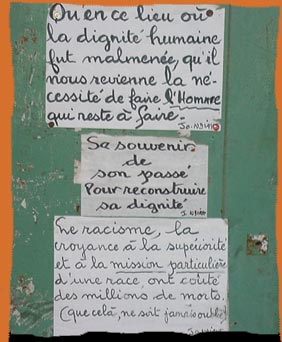 Qu'en ce lieu où
la dignité humaine
fut malmenée, qu'il
nous revienne la né-
cessité de faire l'Homme
qui reste à faire.
Se souvenir
de
son passé
Pour reconstruire
sa dignité
Le racisme, la
croyance à la supériorité
et à la mission particulière
d'une race, ont coûté
des millions de morts.
(que celà, ne soit jamais oublié)